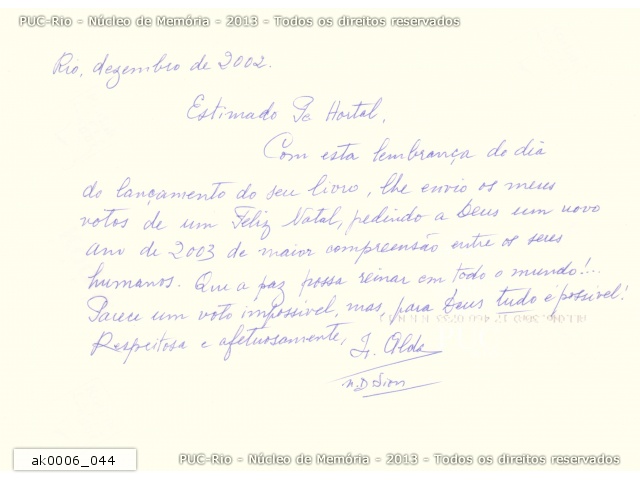 PUC-Rio - Núcleo de Memória - 2013 - Todos os direitos reservados
Rio, dezembro de 2002.
Estimado Pe Hortal,
Com esta lembrança do dia
do lançamento do seu livro, lhe envio os meus
votos de um Feliz Natal, pedindo a Deus um novo
ano de 2003 de maior compreensão entre os seres
humanos. Que a paz possa reinar em todo o mundo!...
Parece um voto impossível, mas para Deus tudo é possível!
Respeitosa e afetuosamente, Ir. Alda
N.D Sion
ak0006_044
PUC-Rio - Núcleo de Memória - 2013 - Todos os direitos reservados